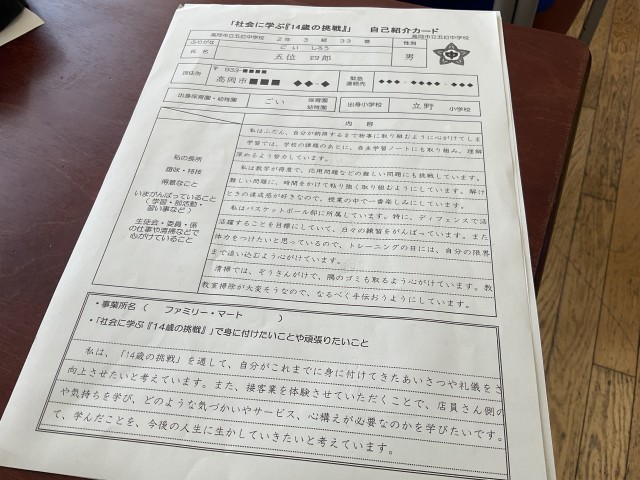 「社会に学ぶ『14歳の挑戦』」 自己紹介カード
高岡市立五位中学校 高岡市立五位中学校
2年 3組 33番
ふりがな ごい しろう 性別
氏名 五位 四郎 男
中
現住所 〒933-■■■■
高岡市■■■ ◆◆-◆
緊急連絡先 ◆◆◆-◆◆◆◆-◆◆◆
出身保育園・幼稚園 ごい 保育園 幼稚園 出身小学校 立野 小学校
内容
私の長所
趣味・特技
得意なこと
いまがんばっていること
(学習・部活動・
習い事など)
生徒会・委員・係
の仕事や清掃などで
心がけていること
私はふだん、自分が納得するまで物事に取り組むように心がけてしま
学習では、学校の課題のあとに、自主学習ノートにも取り組み、理解
深めるよう努力しています。
私は数学が得意で、応用問題などの難しい問題にも挑戦しています。
難しい問題に、時間をかけて粘り強く取り組むようにしています。解け
ときの達成感が好きなので、授業の中で一番楽しみにしています。
私はバスケットボール部に所属しています。特に、ディフェンスで活
活躍することを目標にしていて、日々の練習をがんばっています。また
体力をつけたいと思っているので、トレーニングの日には、自分の限界
まで追い込むよう心がけています。
清掃では、ぞうきんがけで、隅のゴミも取るよう心がけています。教
教室掃除が大変そうなので、なるべく手伝おうようにしています。
・事業所名( ファミリー・マート )
・「社会に学ぶ『14歳の挑戦』」で身に付けたいことや頑張りたいこと
私は、「14歳の挑戦」を通して、自分がこれまでに身に付けてきたあいさつや礼儀をさ
向上させたいと考えています。また、接客業を体験させていただくことで、店員さん側の
や気持ちを学び、どのような気づかいやサービス、心構えが必要なのかを学びたいです。
て、学んだことを、今後の人生に生かしていきたいと考えています。